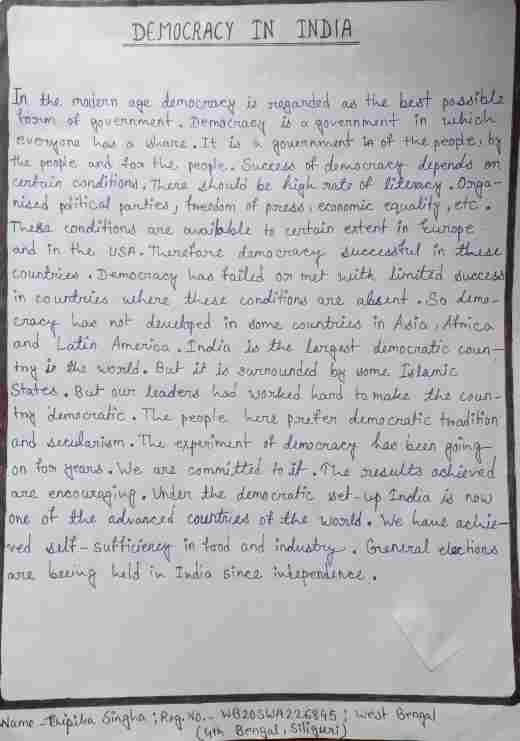 DEMOCRACY IN INDIA
In the modern age democracy is regarded as the best possible
form of government. Democracy is a government in which
everyone has a share. It is a government in of the people, by
the people and for the people. Success of democracy depends on
certain conditions. There should be high rate of literacy. Orga-
nised political parties, freedom of press, economic equality, etc.
These conditions are available to certain extent in Europe
and in the USA. Therefore democracy successful in these
countries. Democracy has failed or met with limited success
in countries where these conditions are absent. So demo-
cracy has not developed in some countries in Asia, Africa
and Latin America. India is the largest democratic coun-
try is the world. But it is surrounded by some Islamic
States. But our leaders had worked hard to make the coun-
try democratic. The people here prefer democratic tradition
and secularism. The experiment of democracy has been going-
on for years. We are committed to it. The results achieved
are encouraging. Under the democratic set-up India is now
one of the advanced countries of the world. We have achie-
ved self-sufficiency in food and industry. General elections
are beeing held in India since independence.
Name - Singha; Reg. No.- WB20SWA226845; West Bengal
(4th Bengal, Siliguri)